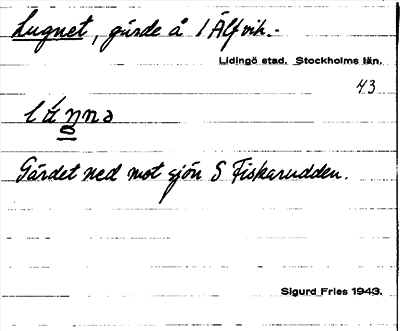 Lugnet, gärde å 1 Älfvik.-
Lidingö stad. Stockholms län.
43
Gärdet ned mot sjön S Fiskarudden.
Sigurd Fries 1943.